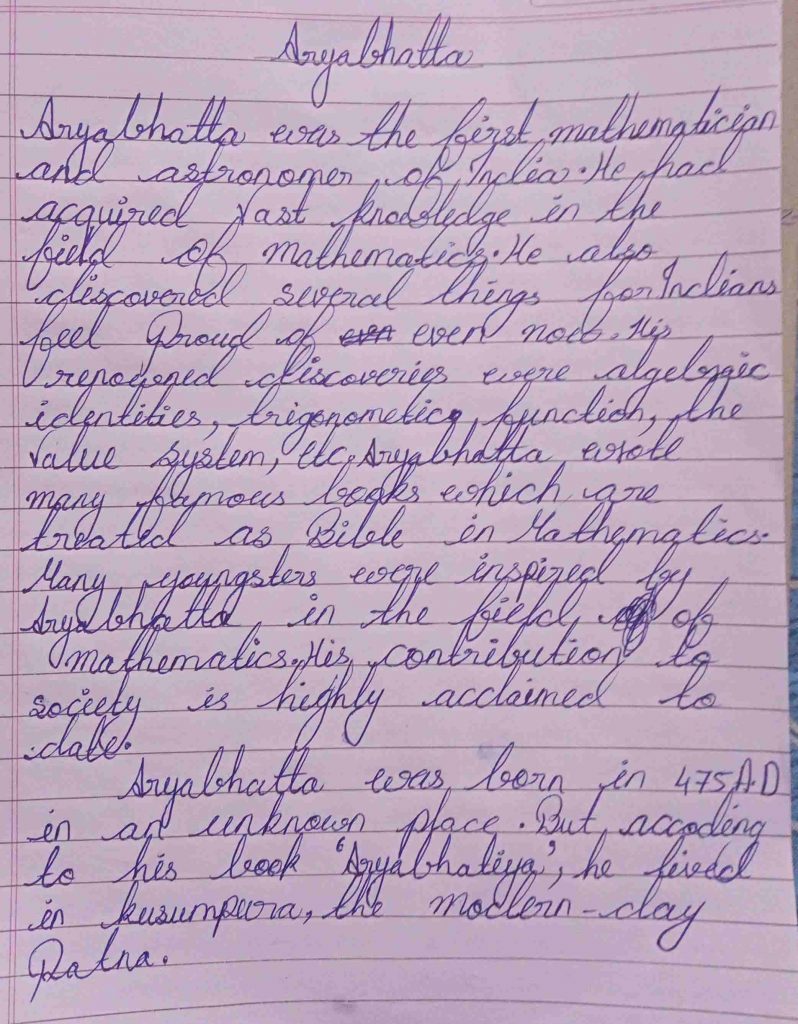 Aryabhatta
Aryabhatta was the first mathematician
and astronomer of India. He had
acquired vast knowledge in the
field of mathematics. He also
discovered several things for Indians
feel Proud of even now. His
renowned discoveries were algebraic
identities, trigonometric function, the
value system, etc. Aryabhatta wrote
many famous books which are
treated as Bible in Mathematics.
Many youngsters were inspired by
Aryabhatta in the field of
mathematics. His contribution to
society is highly acclaimed to
date.
Aryabhatta was born in 475 A.D
in an unknown place. But, accoding
to his book 'Aryabhatiya', he lived
in kusumpura, the modern-day
Patna.